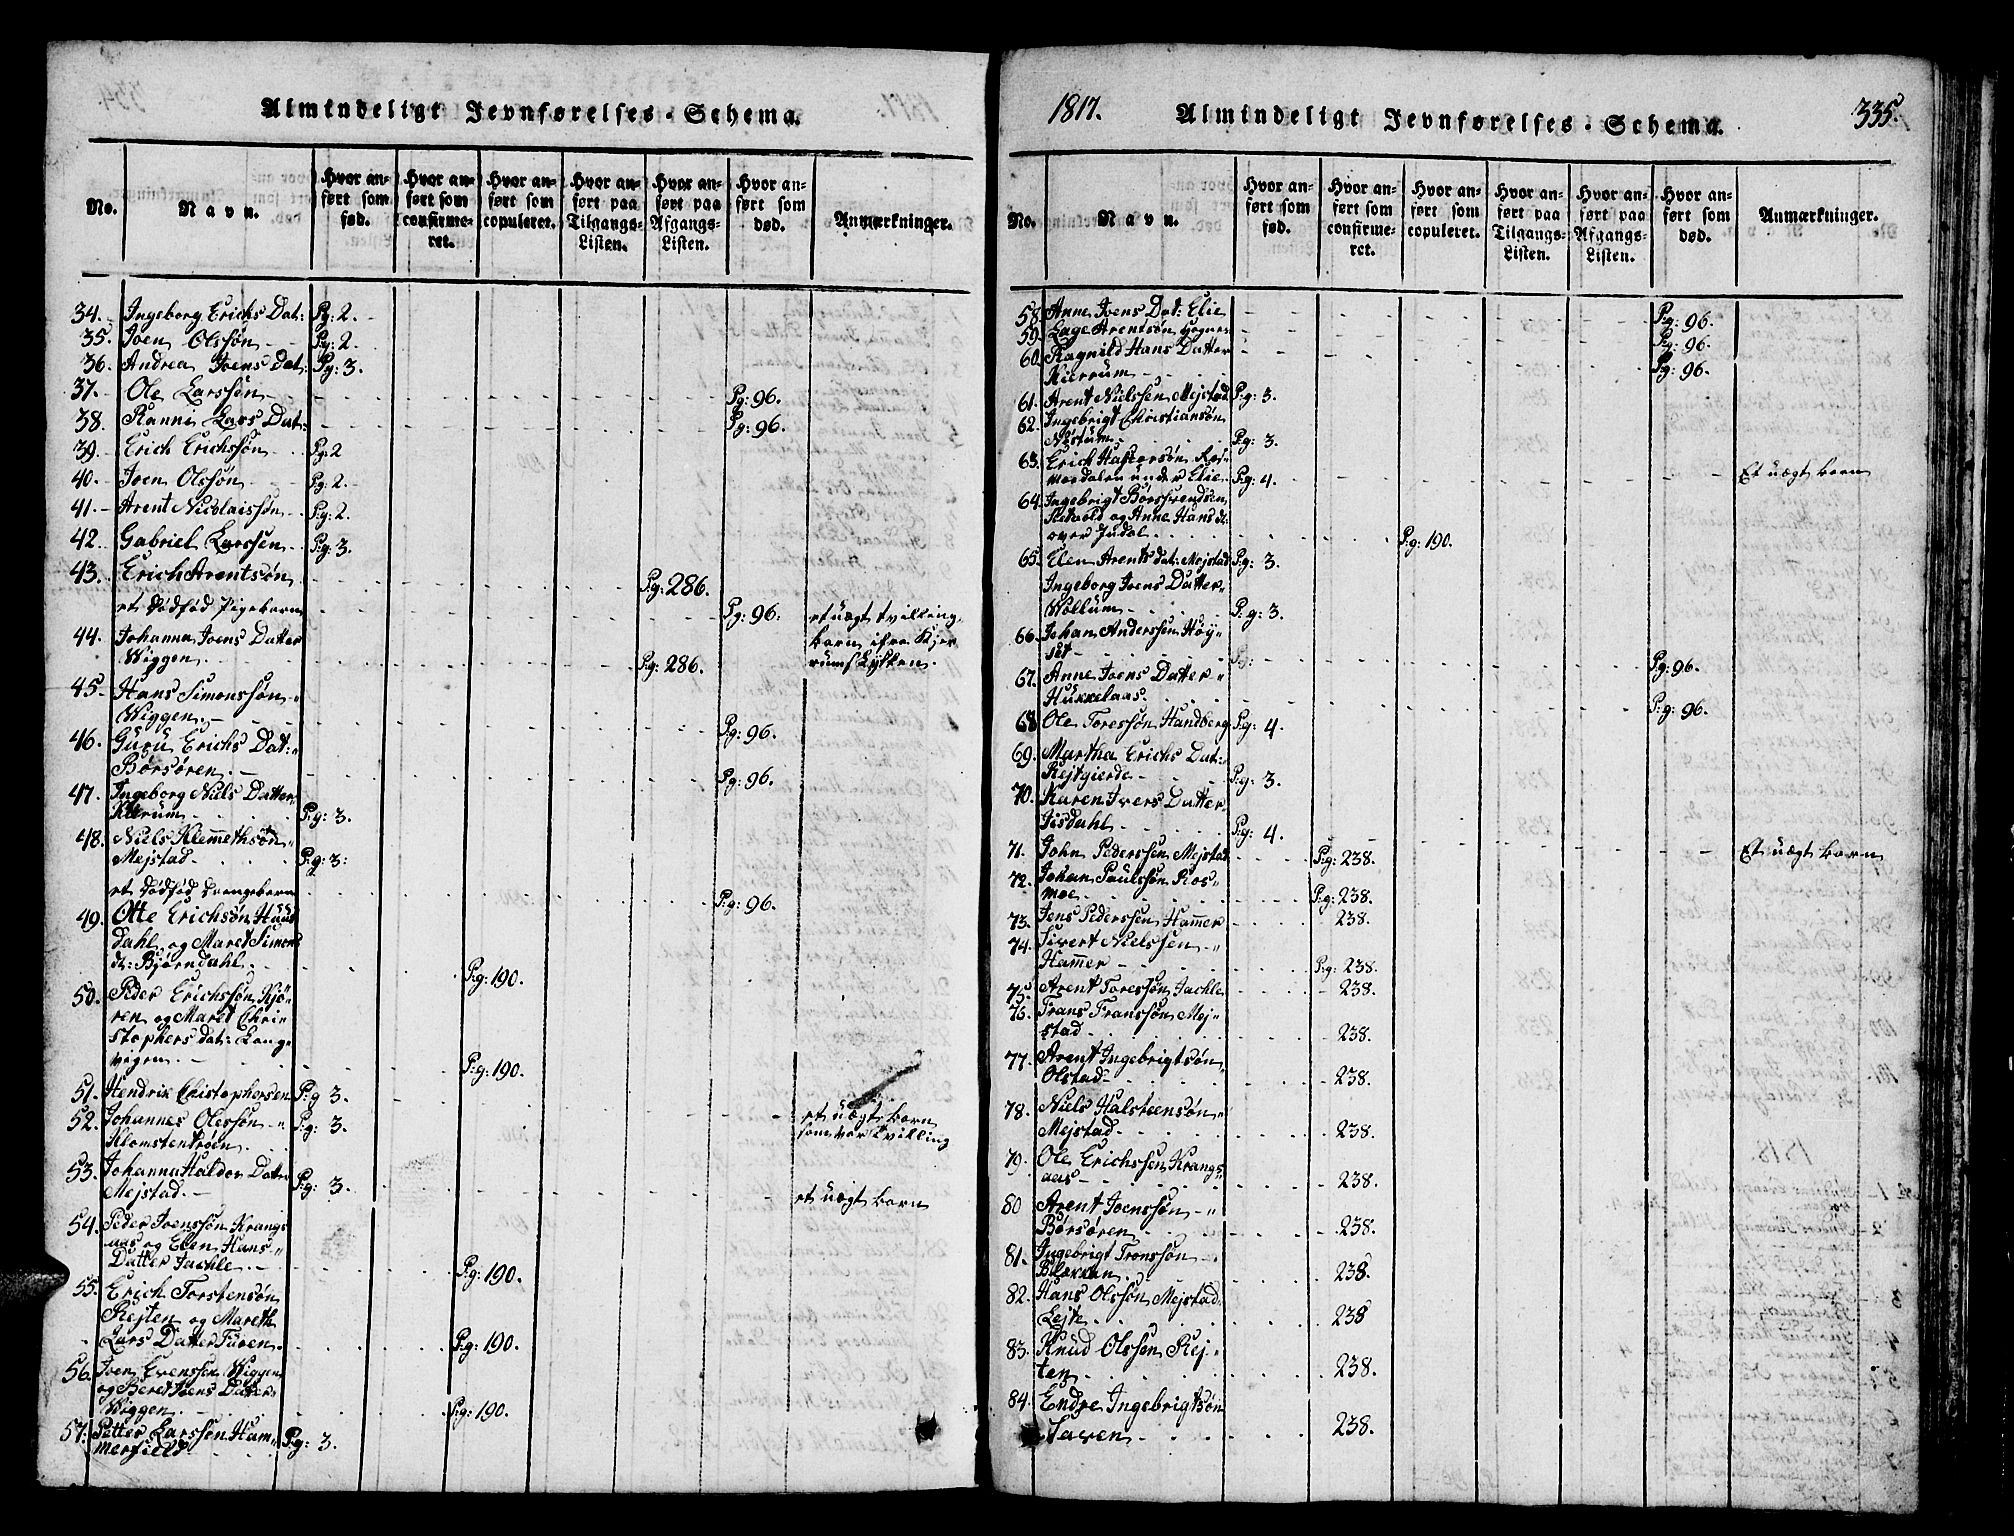 Almindeligt Jevnførelses-Schema.
No.
Navn.
Hvor anført som fød.
Hvor anført som confirmeret.
Hvor anført som copuleret.
Hvor anført paa Tilgangs-Listen.
Hvor anført paa Afgangs-Listen.
Hvor anført som død.
Anmærkninger.
34. Ingeborg Erichs Dat: Pg: 2.
35. Joen Olssøn Pg: 2.
36. Andrea Joens Dat: Pg: 3.
37. Ole Larssøn Pg: 96.
38. Ranni Lars Dat: Pg: 96.
39. Erich Erichssøn Pg: 2
40. Joen Olssøn Pg: 2.
41. Arent Nicolaissøn Pg: 2.
42. Gabriel Larssen Pg: 3.
43. Erich Arentsøn Pg: 286.
et dødfød Pigebarn Pg: 96. et uægt tvilling-
44. Johanna Joens Datter barn ifra Kjer
Wiggen Pg: 286. rums Lykken.
45. Hans Simonssøn
Wiggen Pg: 96.
46. Guru Erichs Dat:
Børsøren Pg: 96.
47. Ingeborg Niels Datter
Kierum Pg: 3.
48. Niels Klemethsøn
Mejstad Pg: 3:
et dødfød Drengebarn Pg: 96.
49. Otte Erichsøn Huus
dahl og Maret Simons
dt: Bjørndahl Pg: 190.
50. Peder Erichssøn Kjö-
ren og Maret Chri-
stophers dat: Lang-
vigen Pg: 190.
51. Hendrik Chistophersen Pg 3.
52. Johannes Olessøn Pg: 3. et uægt barn
Klomstentrøen som var tvilling
53. Johanna Haldor Datter
Mejstad Pg: 3. et uægt barn
54. Peder Joenssøn Krangs
aas og Elen Hans
Datter Jachle Pg: 190.
55. Erich Torstensøn
Rejten og Mareth
Lars Datter Turen Pg: 190.
56. Joen Evenssen Wiggen
og Beret Joens Datter
Wiggen Pg: 190.
57. Petter Larssøn Ham-
merfield Pg: 3.
1817. Almindeligt Jevnførelses-Schema. 335.
No.
Navn.
Hvor anført som fød.
Hvor anført som confirmeret.
Hvor anført som copuleret.
Hvor anført paa Tilgangs-Listen.
Hvor anført paa Afgangs-Listen.
Hvor anført som død.
Anmærkninger.
58. Anne Joens Dat: Elie Pg: 96.
59. Lage Arentsøn Hognes Pg: 96.
60. Ragnild Hans Datter
Kierrum Pg: 96.
61. Arent Nielssen Mejstad Pg: 3.
62. Ingebrigt Christiansøn
Nøstum Pg: 3.
63. Erich Haftorsøn Ros-
moedalen under Elie Pg: 4. Et uægt barn
64. Ingebrigt Børsprendsen
og Anne Hans dt:
over Judal Pg: 190.
65. Elen Arents dat: Mejstad Pg: 3.
Ingeborg Joens Datter
Wollum Pg: 3.
66. Johan Anderssen Høy-
set Pg: Pg: 96.
67. Anne Joens Datter
Hukkelaas Pg: 96.
68 Ole Toressøn Handberg Pg: 4.
69. Martha Erichs Dat:
Rejtgierde Pg: 3.
70. Karen Ivers Datter
Jisdahl Pg: 4.
71. John Pederssen Mejstad Pg: 238. Et uægt barn
72. Johan Paulssøn Ros-
moe Pg: 238.
73. Jens Pederssen Hammer 238.
74. Sivert Nielssen
Hammer Pg: 238.
75. Arent Toressøn Jachle 238.
76. Frans Franssøn Mej-
stad 238.
77. Arent Ingebrigtsøn
Olstad 238.
78. Niels Halsteensøn
Mejstad 238.
79. Ole Erichssen Krangs
aas 238.
80 Arent Joenssøn
Børsøren 238.
81. Ingebrigt Tronssøn
Blekken 238.
82. Hans Olssøn Mejstad
Lejte 238
83. Knud Olssen Rej-
ten 238.
84. Endre Ingebrigtsøn
Saven 238.